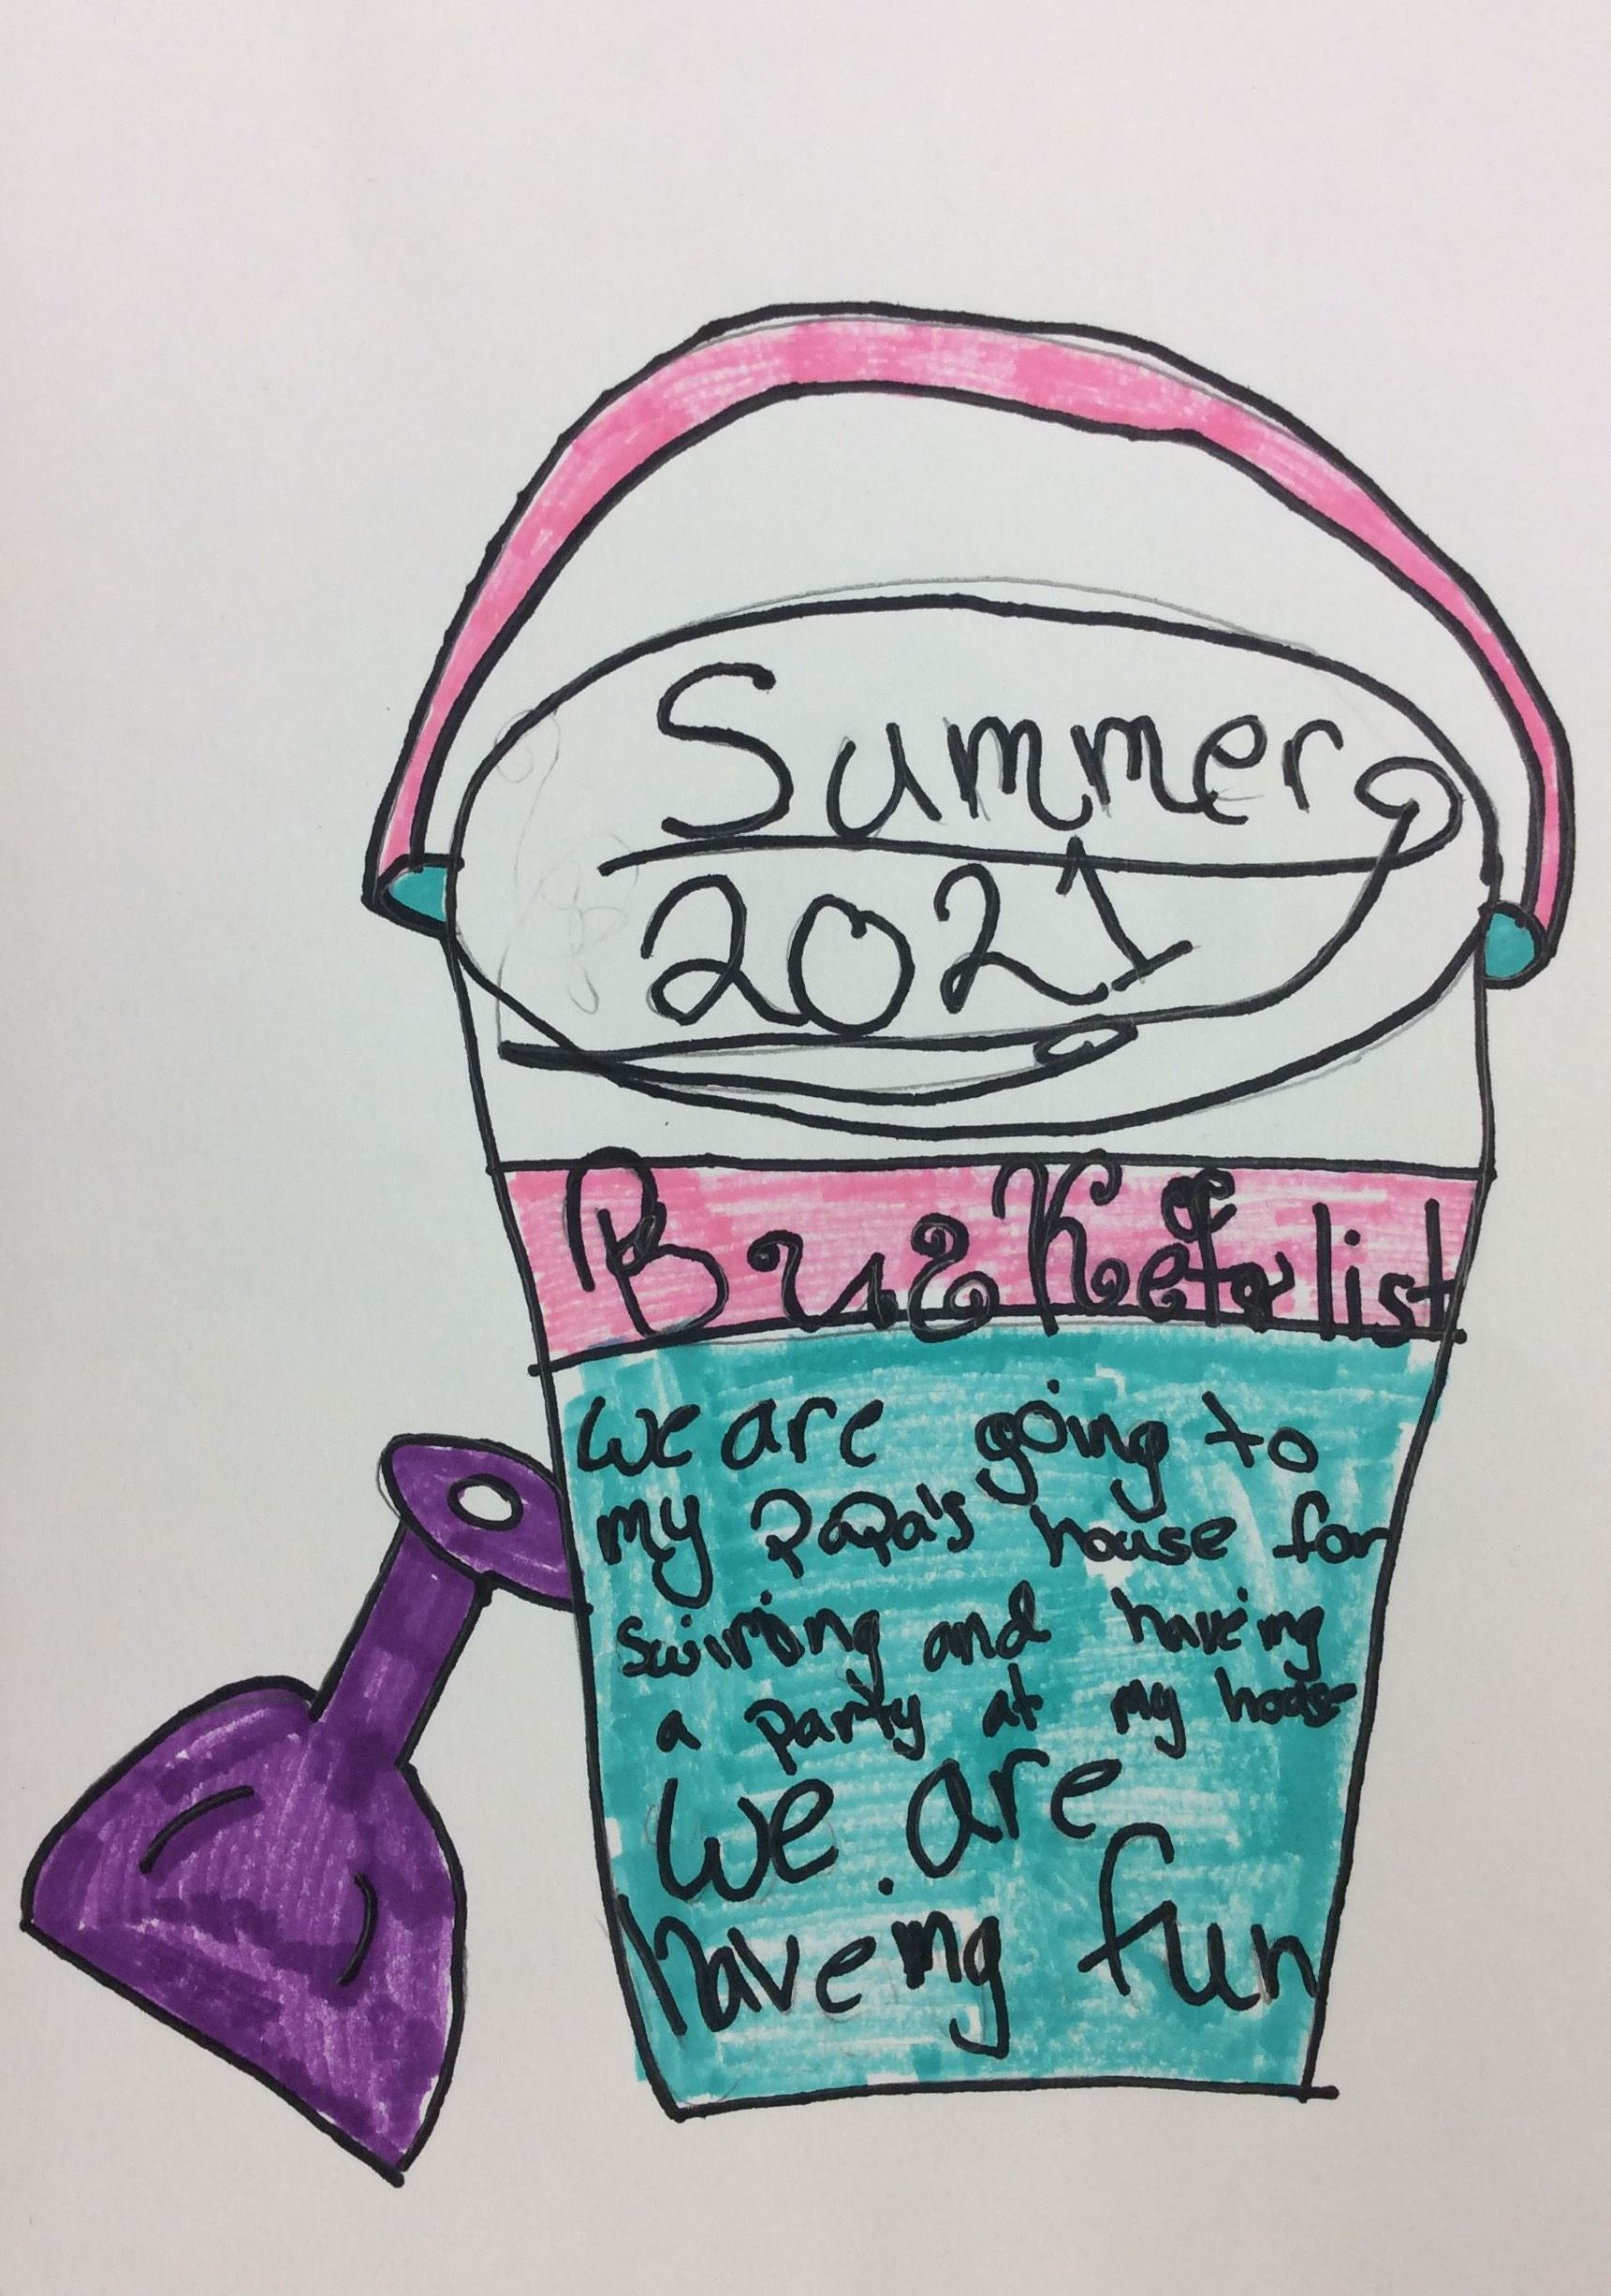 Summer
2021
Bucket list
we are going to
my PaPa's house for
and haveing
a party at my house
we are
haveing fun